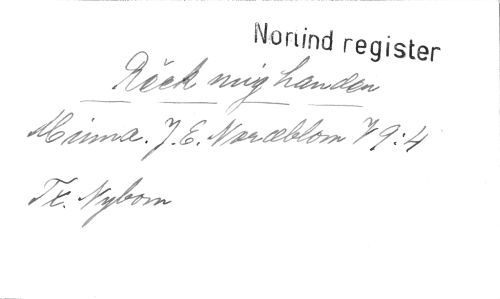 Norlind register
Räck mig handen
Minna. J. E. Nordblom V 9:4
Tx. Nybom